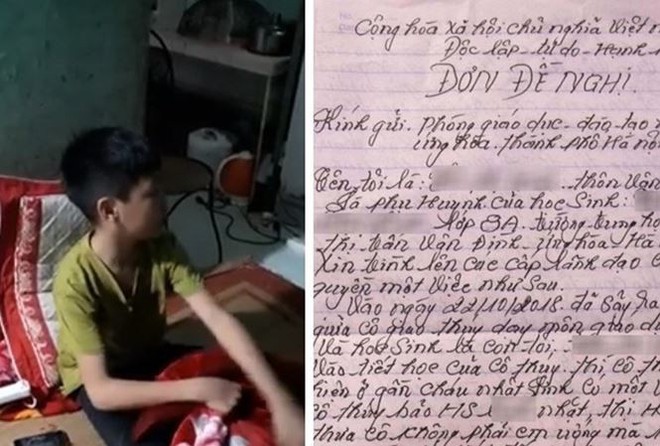 Cộng hòa xã hội chủ nghĩa Việt
Độc lập - tự do - Hạnh
ĐƠN ĐỀ NGHỊ.
Kính gửi. Phòng giáo dục - đào tạo
ứng hòa. thành phố Hà Nội
Tên tôi là: thôn Vân
Là phụ Huynh của học Sinh:
lớp 8A. trường trung học
thị trấn Vân Đình - ứng hòa Hà
Xin trình lên các cấp lãnh đạo
nguyện một việc như sau.
Vào ngày 22/10/2018. đã Sảy ra
giữa cô giáo thuy day môn giáo dục
Và học Sinh là con tôi.
Vào tiết học của Cô thuy. thì cô
hiện ở gần cháu nhật Sinh Co một
Cô thuy bảo HS nhật, thì
thưa cô không phải em vọng mà